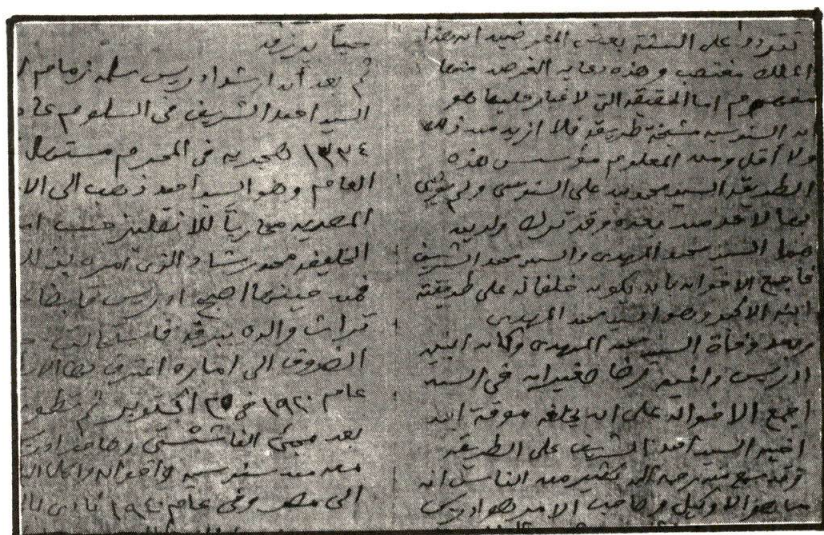 تتردد على السنة بعض المغرضين ان هذا
الملك مغتصب وهذه دعاية الغرض منها
مفهوم اما الحقيقة التي لا غبار عليها هو
ان السنوسية مشيخة طريقة فلا ازيد من ذلك
ولا أقل ومن المعلوم مؤسس هذه
الطريقة السيد محمد بن علي السنوسي ولم يوصي
بها لاحد من بعده وقد ترك ولدين
هما السيد محمد المهدي والسيد محمد الشريف
فاجمع الاخوان بان يكون خلفا له على طريقته
ابنه الاكبر وهو السيد محمد المهدي
وبعد وفاة السيد محمد المهدي وكان ابنيه
ادريس واخيه رضا صغيران في السن
اجمع الاخوان على ان يخلفه موقة ابن
اخيه السيد احمد الشريف على الطريقة
وقد سمع منه رحمه الله كثير من الناس انه
ما هو الا وكيل وصاحب الامر هو ادريس
حيا يرزق
ثم بعد أن ارشد ادريس سلمه زمام
السيد احمد الشريف في السلوم عام
١٣٣٤ هجريه في المحرم مستهل
العام وهو السيد أحمد ذهب الى
المصرية محاربا للانقليز حسب
الخليفة محمد رشاد الذي امره بذلك
فمن حينها اصبح ادريس قابضا
تراث والده ببرقة
الى امارة اعترف بها
عام ١٩٢٠ في ٢٥ اكتوبر ثم
بعد مجئ الفاشستي
معه من سنوسيه واخوان
الى مصر وفي عام ١٩٤٠